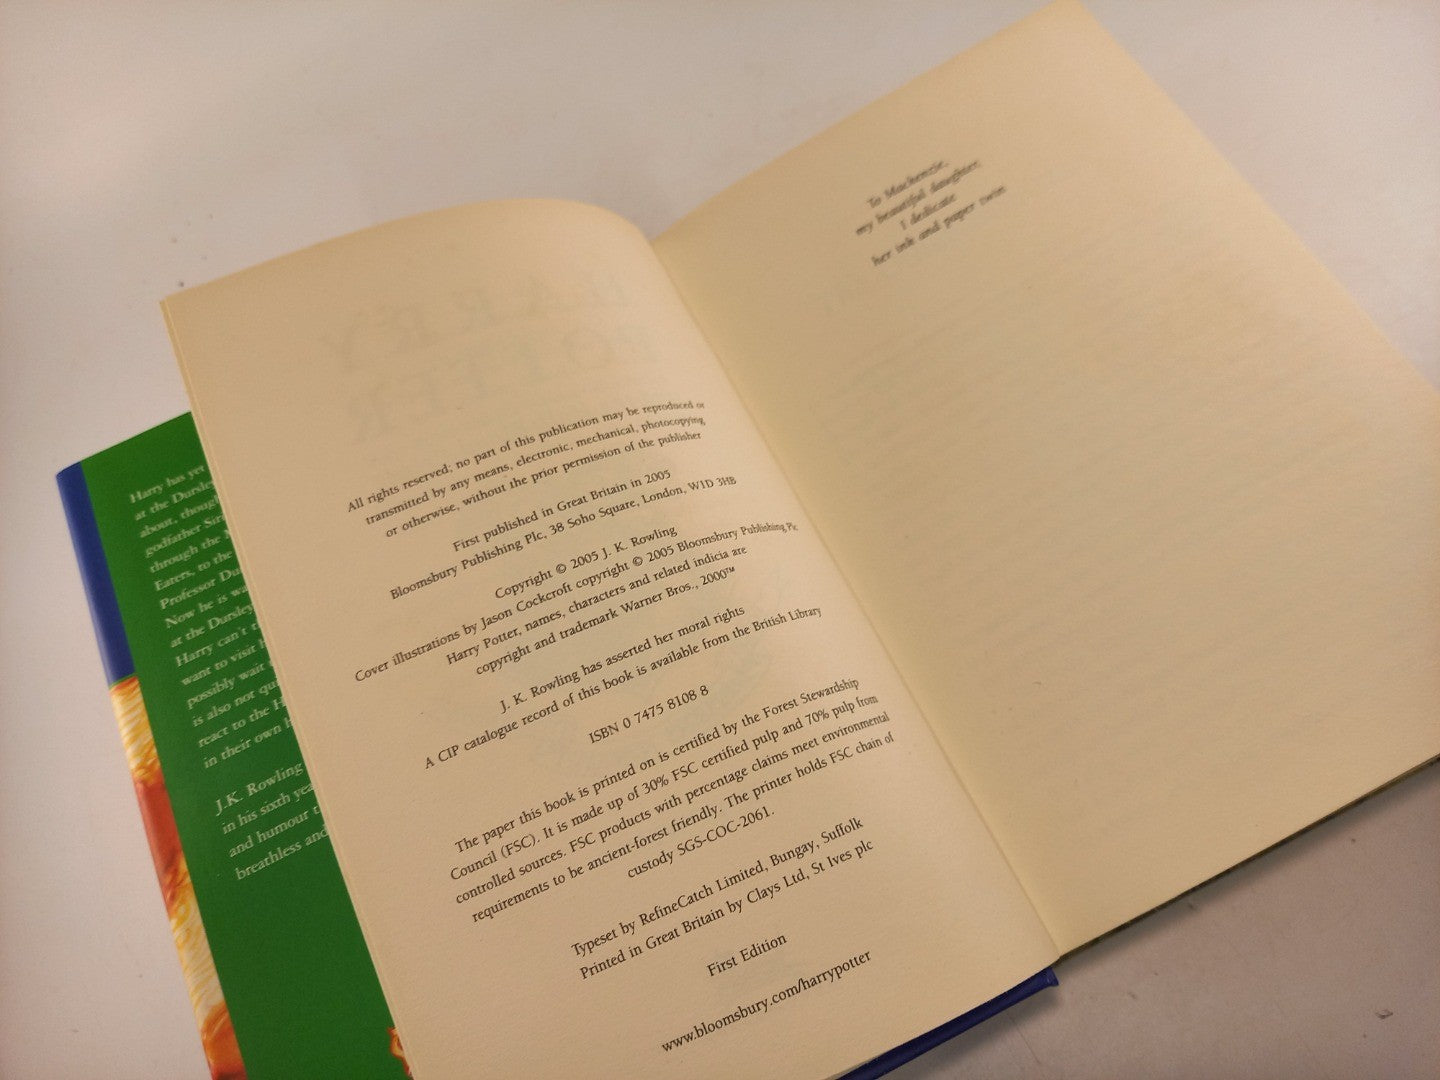 Harry has yet
at the Dursley
about, though
godfather Siri
through the
Eaters, to the
Professor Du
Now he is wa
at the Dursley
Harry can't t
want to visit h
possibly wait
is also not qui
react to the H
in their own h
J.K. Rowling
in his sixth yea
and humour t
breathless and
All rights reserved; no part of this publication may be reproduced or
transmitted by any means, electronic, mechanical, photocopying
or otherwise, without the prior permission of the publisher
First published in Great Britain in 2005
Bloomsbury Publishing Plc, 38 Soho Square, London, W1D 3HB
Copyright © 2005 J. K. Rowling
Cover illustrations by Jason Cockcroft copyright © 2005 Bloomsbury Publishing Plc
Harry Potter, names, characters and related indicia are
copyright and trademark Warner Bros., 2000™
J. K. Rowling has asserted her moral rights
A CIP catalogue record of this book is available from the British Library
ISBN 0 7475 8108 8
The paper this book is printed on is certified by the Forest Stewardship
Council (FSC). It is made up of 30% FSC certified pulp and 70% pulp from
controlled sources. FSC products with percentage claims meet environmental
requirements to be ancient-forest friendly. The printer holds FSC chain of
custody SGS-COC-2061.
Typeset by RefineCatch Limited, Bungay, Suffolk
Printed in Great Britain by Clays Ltd, St Ives plc
First Edition
www.bloomsbury.com/harrypotter
To Mackenzie,
my beautiful daughter,
I dedicate
her ink and paper twin